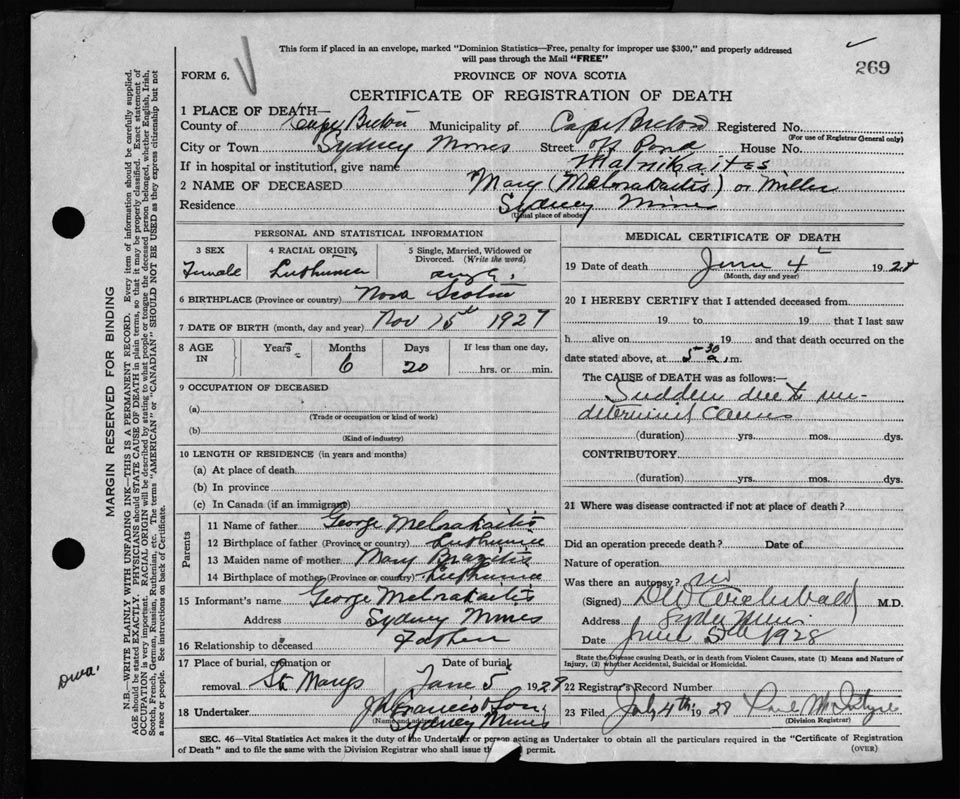 This form if placed in an envelope, marked "Dominion Statistics—Free, penalty for improper use $300," and properly addressed
will pass through the Mail "FREE"
269
FORM 6.
PROVINCE OF NOVA SCOTIA
CERTIFICATE OF REGISTRATION OF DEATH
1 PLACE OF DEATH—
County of Cape Breton Municipality of Cape Breton Registered No.
(For use of Registrar General only)
City or Town Sydney Mines Street off Pond House No.
If in hospital or institution, give name Malnikaites
2 NAME OF DECEASED Mary (Melnakaitis) or Miller
Residence Sydney Mines
(Usual place of abode)
PERSONAL AND STATISTICAL INFORMATION
3 SEX 4 RACIAL ORIGIN 5 Single, Married, Widowed or
Divorced. (Write the word)
Female single
6 BIRTHPLACE (Province or country) Nova Scotia
7 DATE OF BIRTH (month, day and year) Nov 15th 1927
8 AGE IN Years Months Days If less than one day,
6 20 hrs. or min.
9 OCCUPATION OF DECEASED
(a)
(Trade or occupation or kind of work)
(b)
(Kind of industry)
10 LENGTH OF RESIDENCE (in years and months)
(a) At place of death
(b) In province
(c) In Canada (if an immigrant)
Parents
11 Name of father George Melnakaitis
12 Birthplace of father (Province or country)
13 Maiden name of mother Mary Brazitis
14 Birthplace of mother (Province or country)
15 Informant's name George Melnakaitis
Address Sydney Mines
16 Relationship to deceased Father
17 Place of burial, cremation or Date of burial
removal St Marys June 5 1928
18 Undertaker & Son
(Name and address)
Sydney Mines
MEDICAL CERTIFICATE OF DEATH
19 Date of death June 4th 1928
(Month, day and year)
20 I HEREBY CERTIFY that I attended deceased from
19 to 19 that I last saw
h alive on 19 and that death occurred on the
date stated above, at 5-30 a.m.
The CAUSE of DEATH was as follows:—
Sudden due to un-
determined causes
(duration) yrs. mos. dys.
CONTRIBUTORY
(duration) yrs. mos. dys.
21 Where was disease contracted if not at place of death?
Did an operation precede death? Date of
Nature of operation
Was there an autopsy? no
(Signed) DW Archibald M.D.
Address Sydney Mines
Date June 5th 1928
State the Disease causing Death, or in death from Violent Causes, state (1) Means and Nature of
Injury, (2) whether Accidental, Suicidal or Homicidal.
22 Registrar's Record Number
23 Filed July 4th 1928
(Division Registrar)
SEC. 46—Vital Statistics Act makes it the duty of the Undertaker or person acting as Undertaker to obtain all the particulars required in the "Certificate of Registration
of Death" and to file the same with the Division Registrar who shall issue the permit.
(OVER)
MARGIN RESERVED FOR BINDING
N.B.—WRITE PLAINLY WITH UNFADING INK—THIS IS A PERMANENT RECORD. Every item of information should be carefully supplied.
AGE should be stated EXACTLY. PHYSICIANS should STATE CAUSE OF DEATH in plain terms, so that it may be properly classified. Exact statement of
OCCUPATION is very important. RACIAL ORIGIN will be described by stating to what people or tongue the deceased person belonged, whether English, Irish,
Scotch, French, German, Russian, Ruthenian, etc. The terms "AMERICAN" or "CANADIAN" SHOULD NOT BE USED as they express citizenship but not
a race or people. See instructions on back of Certificate.